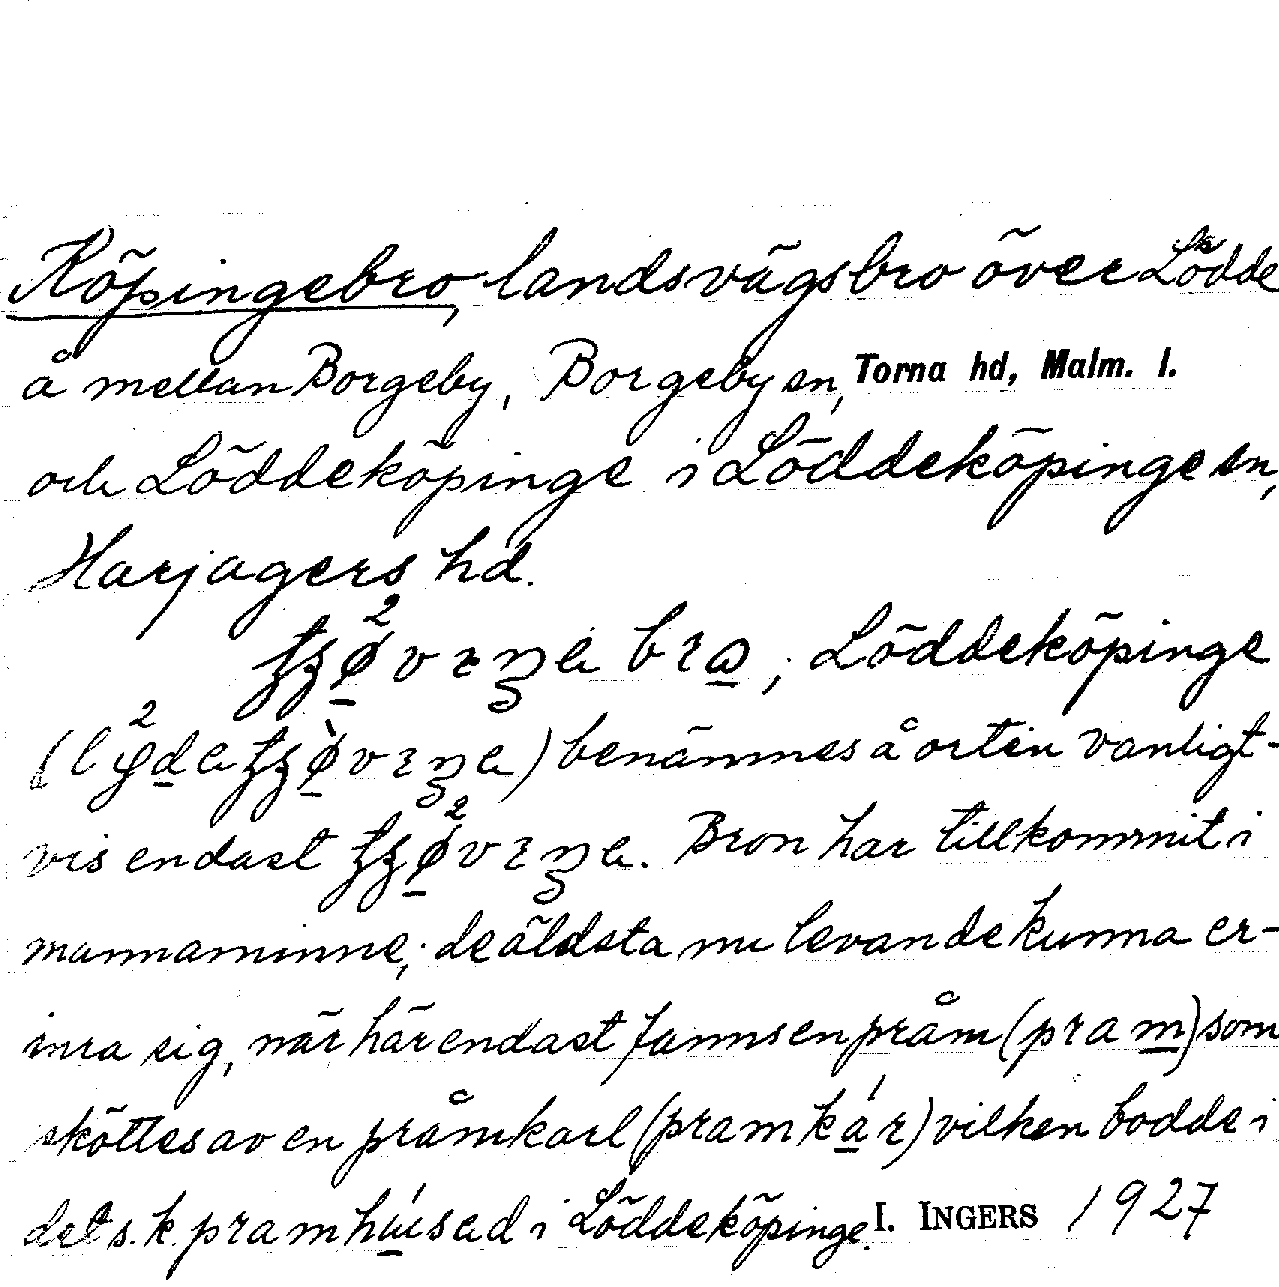 Köpingebro, landsvägsbro över Lödde
å mellan Borgeby, Borgeby sn, Torna hd, Malm. l.
och Löddeköpinge i Löddeköpinge sn,
Harjagers hd.
bro, Löddeköpinge
benämnes å orten vanligt-
vis endast Bron har tillkommit i
mannaminne; de äldsta nu levande kunna er-
inra sig, när här endast fanns en pråm (pram) som
sköttes av en pråmkarl (pramkár) vilken bodde i
det s.k. pramhúsed i Löddeköpinge. I. INGERS 1927